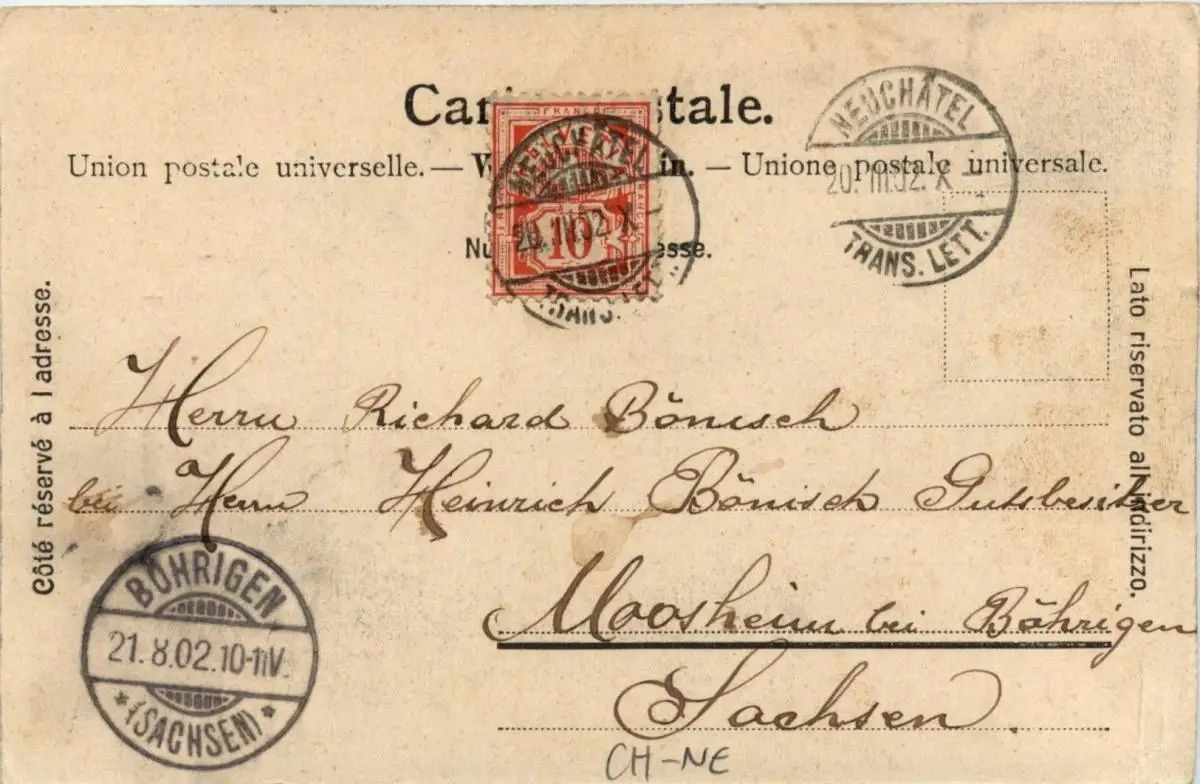 Carte postale.
Union postale universelle. — W in. — Unione postale universale.
Nu esse.
FRANCO
10
NEUCHÂTEL
20. III. 02. X
TRANS. LETT.
NEUCHÂTEL
20. III. 02. X
TRANS. LETT.
Côté réservé à l adresse.
Lato riservato all'indirizzo.
Herrn Richard Bönisch
bei Herrn Heinrich Bönisch Gutsbesitzer
Moosheim bei Böhrigen
Sachsen
BÖHRIGEN
21. 8. 02. 10-11V.
* (SACHSEN) *
CH-NE